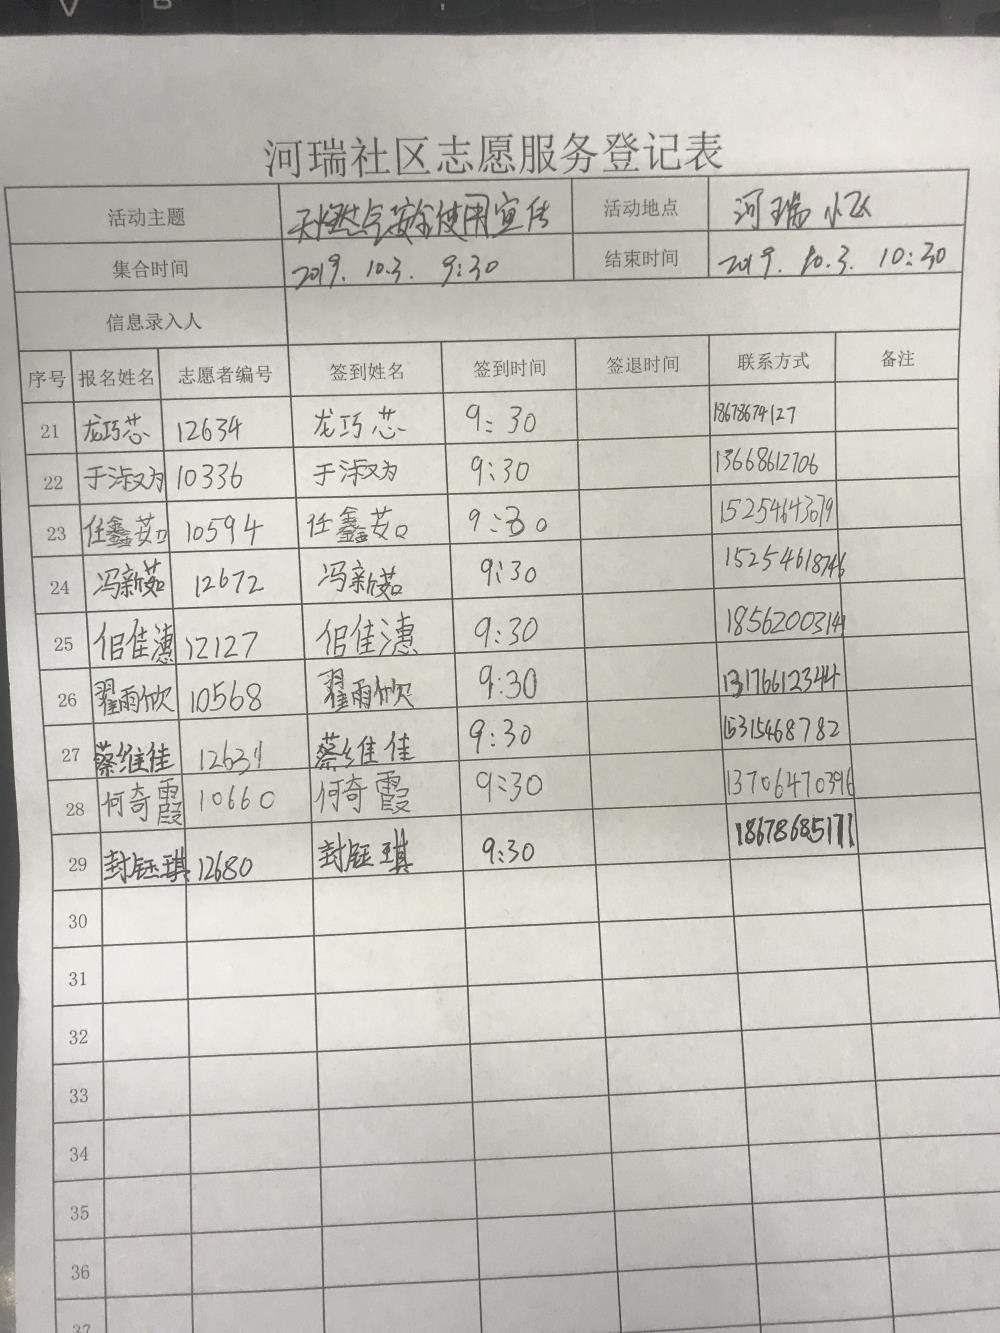 河瑞社区志愿服务登记表
活动主题 天燃气安全使用宣传 活动地点 河瑞小区
集合时间 2019.10.3. 9:30 结束时间 2019.10.3. 10:30
信息录入人
序号 报名姓名 志愿者编号 签到姓名 签到时间 签退时间 联系方式 备注
21 龙巧芯 12634 龙巧芯 9:30 18678674127
22 于淑为 10336 于淑为 9:30 13668612706
23 任鑫茹 10594 任鑫茹 9:30 15254643679
24 冯新茹 12672 冯新茹 9:30 15254618746
25 佀佳潓 12127 佀佳潓 9:30 18562003141
26 翟雨欣 10568 翟雨欣 9:30 13176612344
27 蔡维佳 蔡维佳 9:30 15315468782
28 何奇霞 10660 何奇霞 9:30 13706470396
29 封钰琪 12680 封钰琪 9:30 18678685171
30
31
32
33
34
35
36
37